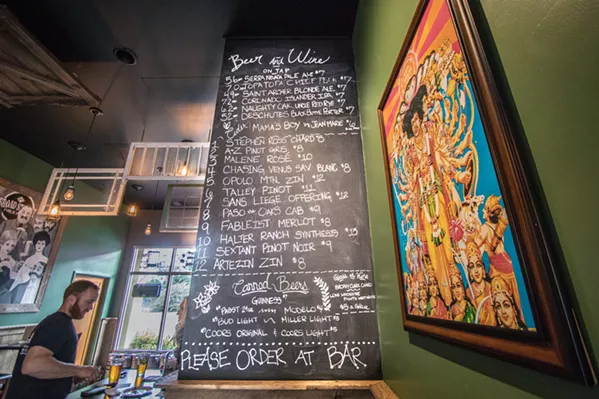 Beer and Wine
ON TAP
SIERRA NEVADA PALE ALE $7
TOPA TOPA CHIEF PEAK $7
SAINT ARCHER BLONDE ALE $7
CORONADO ISLANDER IPA $7
NAUGHTY OAK UNDER RED RYE $7
DESCHUTES BLACK BUTTE PORTER $7
MAMA'S BOY JEAN MARIE
1 STEPHEN ROSS CHARD $8
2 A-Z PINOT GRIS $8
3 MALENE ROSÉ $10
4 CHASING VENUS SAV BLANC $8
5 OPOLO MTN. ZIN $12
6 TALLEY PINOT $12
7 SANS LIEGE OFFERING $12
8 PASO CAB $9
9 FABLEIST MERLOT $8
10 HALTER RANCH SYNTHESIS $13
11 SEXTANT PINOT NOIR $9
12 ARTEZIN ZIN $8
Canned Beers
GUINNESS
PABST MODELO
BUD LIGHT MILLER LIGHT
COORS ORIGINAL & COORS LIGHT
PLEASE ORDER AT BAR